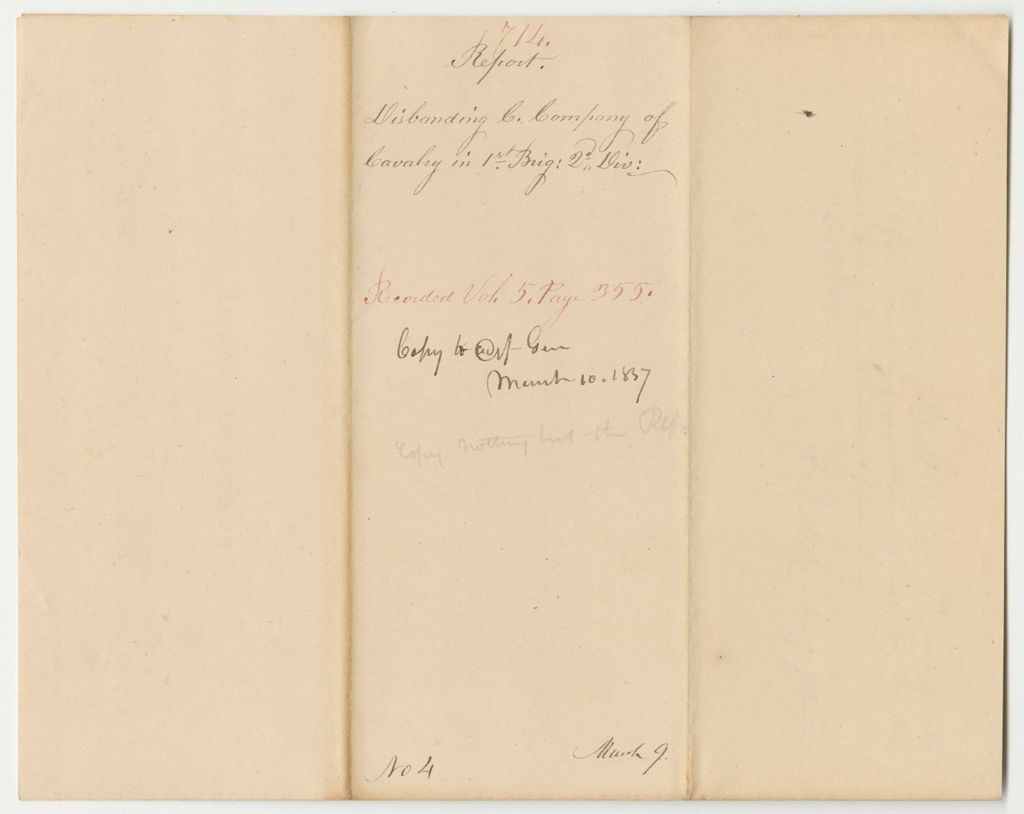 714.
Report.
Disbanding C. Company of
Cavalry in 1st Brig: 2d Div:
Recorded Vol. 5. Page 355.
Copy to Adjt Gen
March 10. 1837
Copy nothing but the Rep.
No 4
March 9.